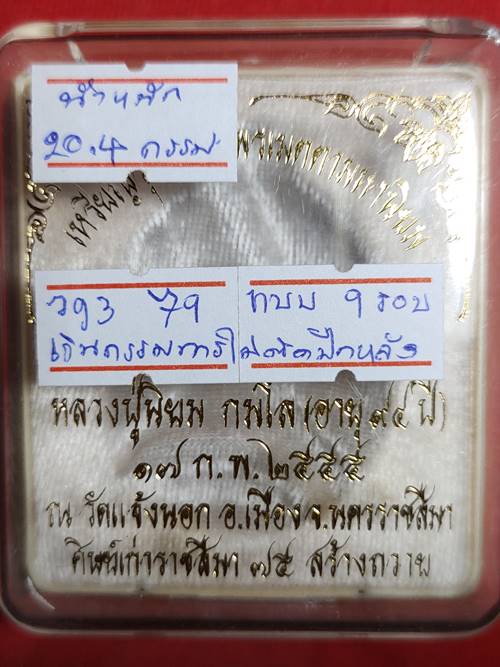 น้ำหนัก
20.4 กรรม
เหรียญ
พรเมตตามหานิยม
793 79
ทบบ 9 รอบ
เงินกรรมการ
หลวงปู่นิยม กมโล (อายุ ๙๔ ปี)
๑๗ ก.พ. ๒๕๕๕
ณ วัดแจ้งนอก อ.เมือง จ.นครราชสีมา
ศิษย์เก่าราชสีมา ๓๕ สร้างถวาย